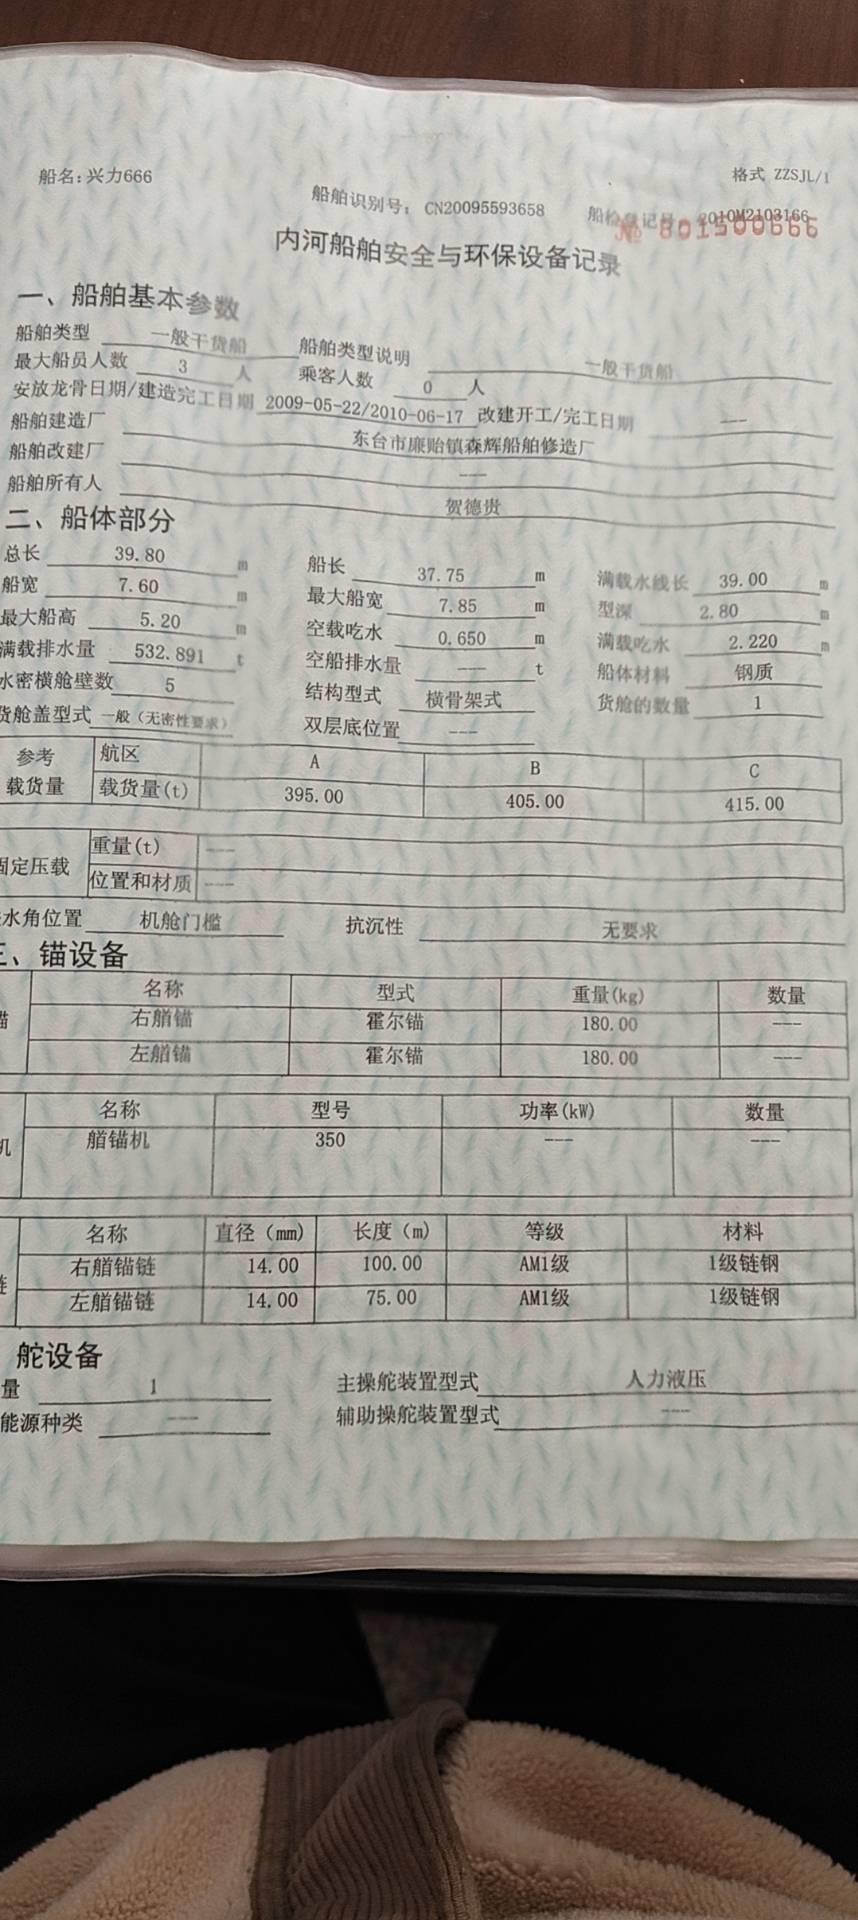 船名:兴力666
格式 ZZSJL/1
船舶识别号: CN20095593658
船检登记号: 2010M2103166
№ 801500666
内河船舶安全与环保设备记录
一、船舶基本参数
船舶类型 一般干货船 船舶类型说明 一般干货船
最大船员人数 3 人 乘客人数 0 人
安放龙骨日期/建造完工日期 2009-05-22/2010-06-17 改建开工/完工日期 ---
船舶建造厂 东台市廉贻镇森辉船舶修造厂
船舶改建厂 ---
船舶所有人 贺德贵
二、船体部分
总长 39.80 m 船长 37.75 m 满载水线长 39.00 m
船宽 7.60 m 最大船宽 7.85 m 型深 2.80 m
最大船高 5.20 m 空载吃水 0.650 m 满载吃水 2.220 m
满载排水量 532.891 t 空船排水量 --- t 船体材料 钢质
水密横舱壁数 5 结构型式 横骨架式 货舱的数量 1
货舱盖型式 一般（无密性要求） 双层底位置 ---
参考载货量 航区 A B C
载货量(t) 395.00 405.00 415.00
固定压载 重量(t) ---
位置和材质 ---
水角位置 机舱门槛 抗沉性 无要求
三、锚设备
名称 型式 重量(kg) 数量
锚 右艏锚 霍尔锚 180.00 ---
左艏锚 霍尔锚 180.00 ---
名称 型号 功率(kW) 数量
机 艏锚机 350 --- ---
名称 直径（mm) 长度（m) 等级 材料
链 右艏锚链 14.00 100.00 AM1级 1级链钢
左艏锚链 14.00 75.00 AM1级 1级链钢
舵设备
量 1 主操舵装置型式 人力液压
能源种类 --- 辅助操舵装置型式 ---